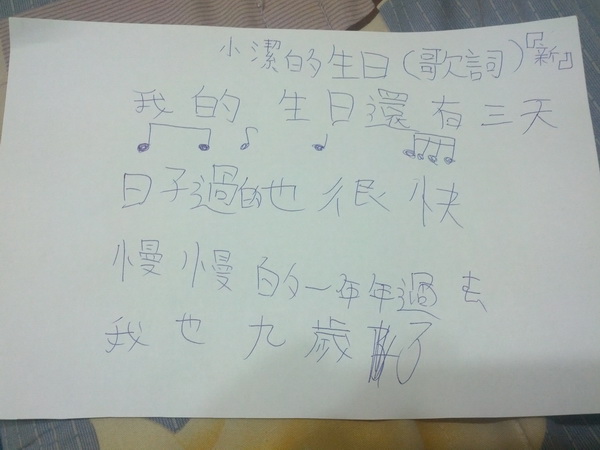 小潔的生日(歌詞)『新』
我的生日還有三天
日子過的也很快
慢慢的一年年過去
我也九歲了